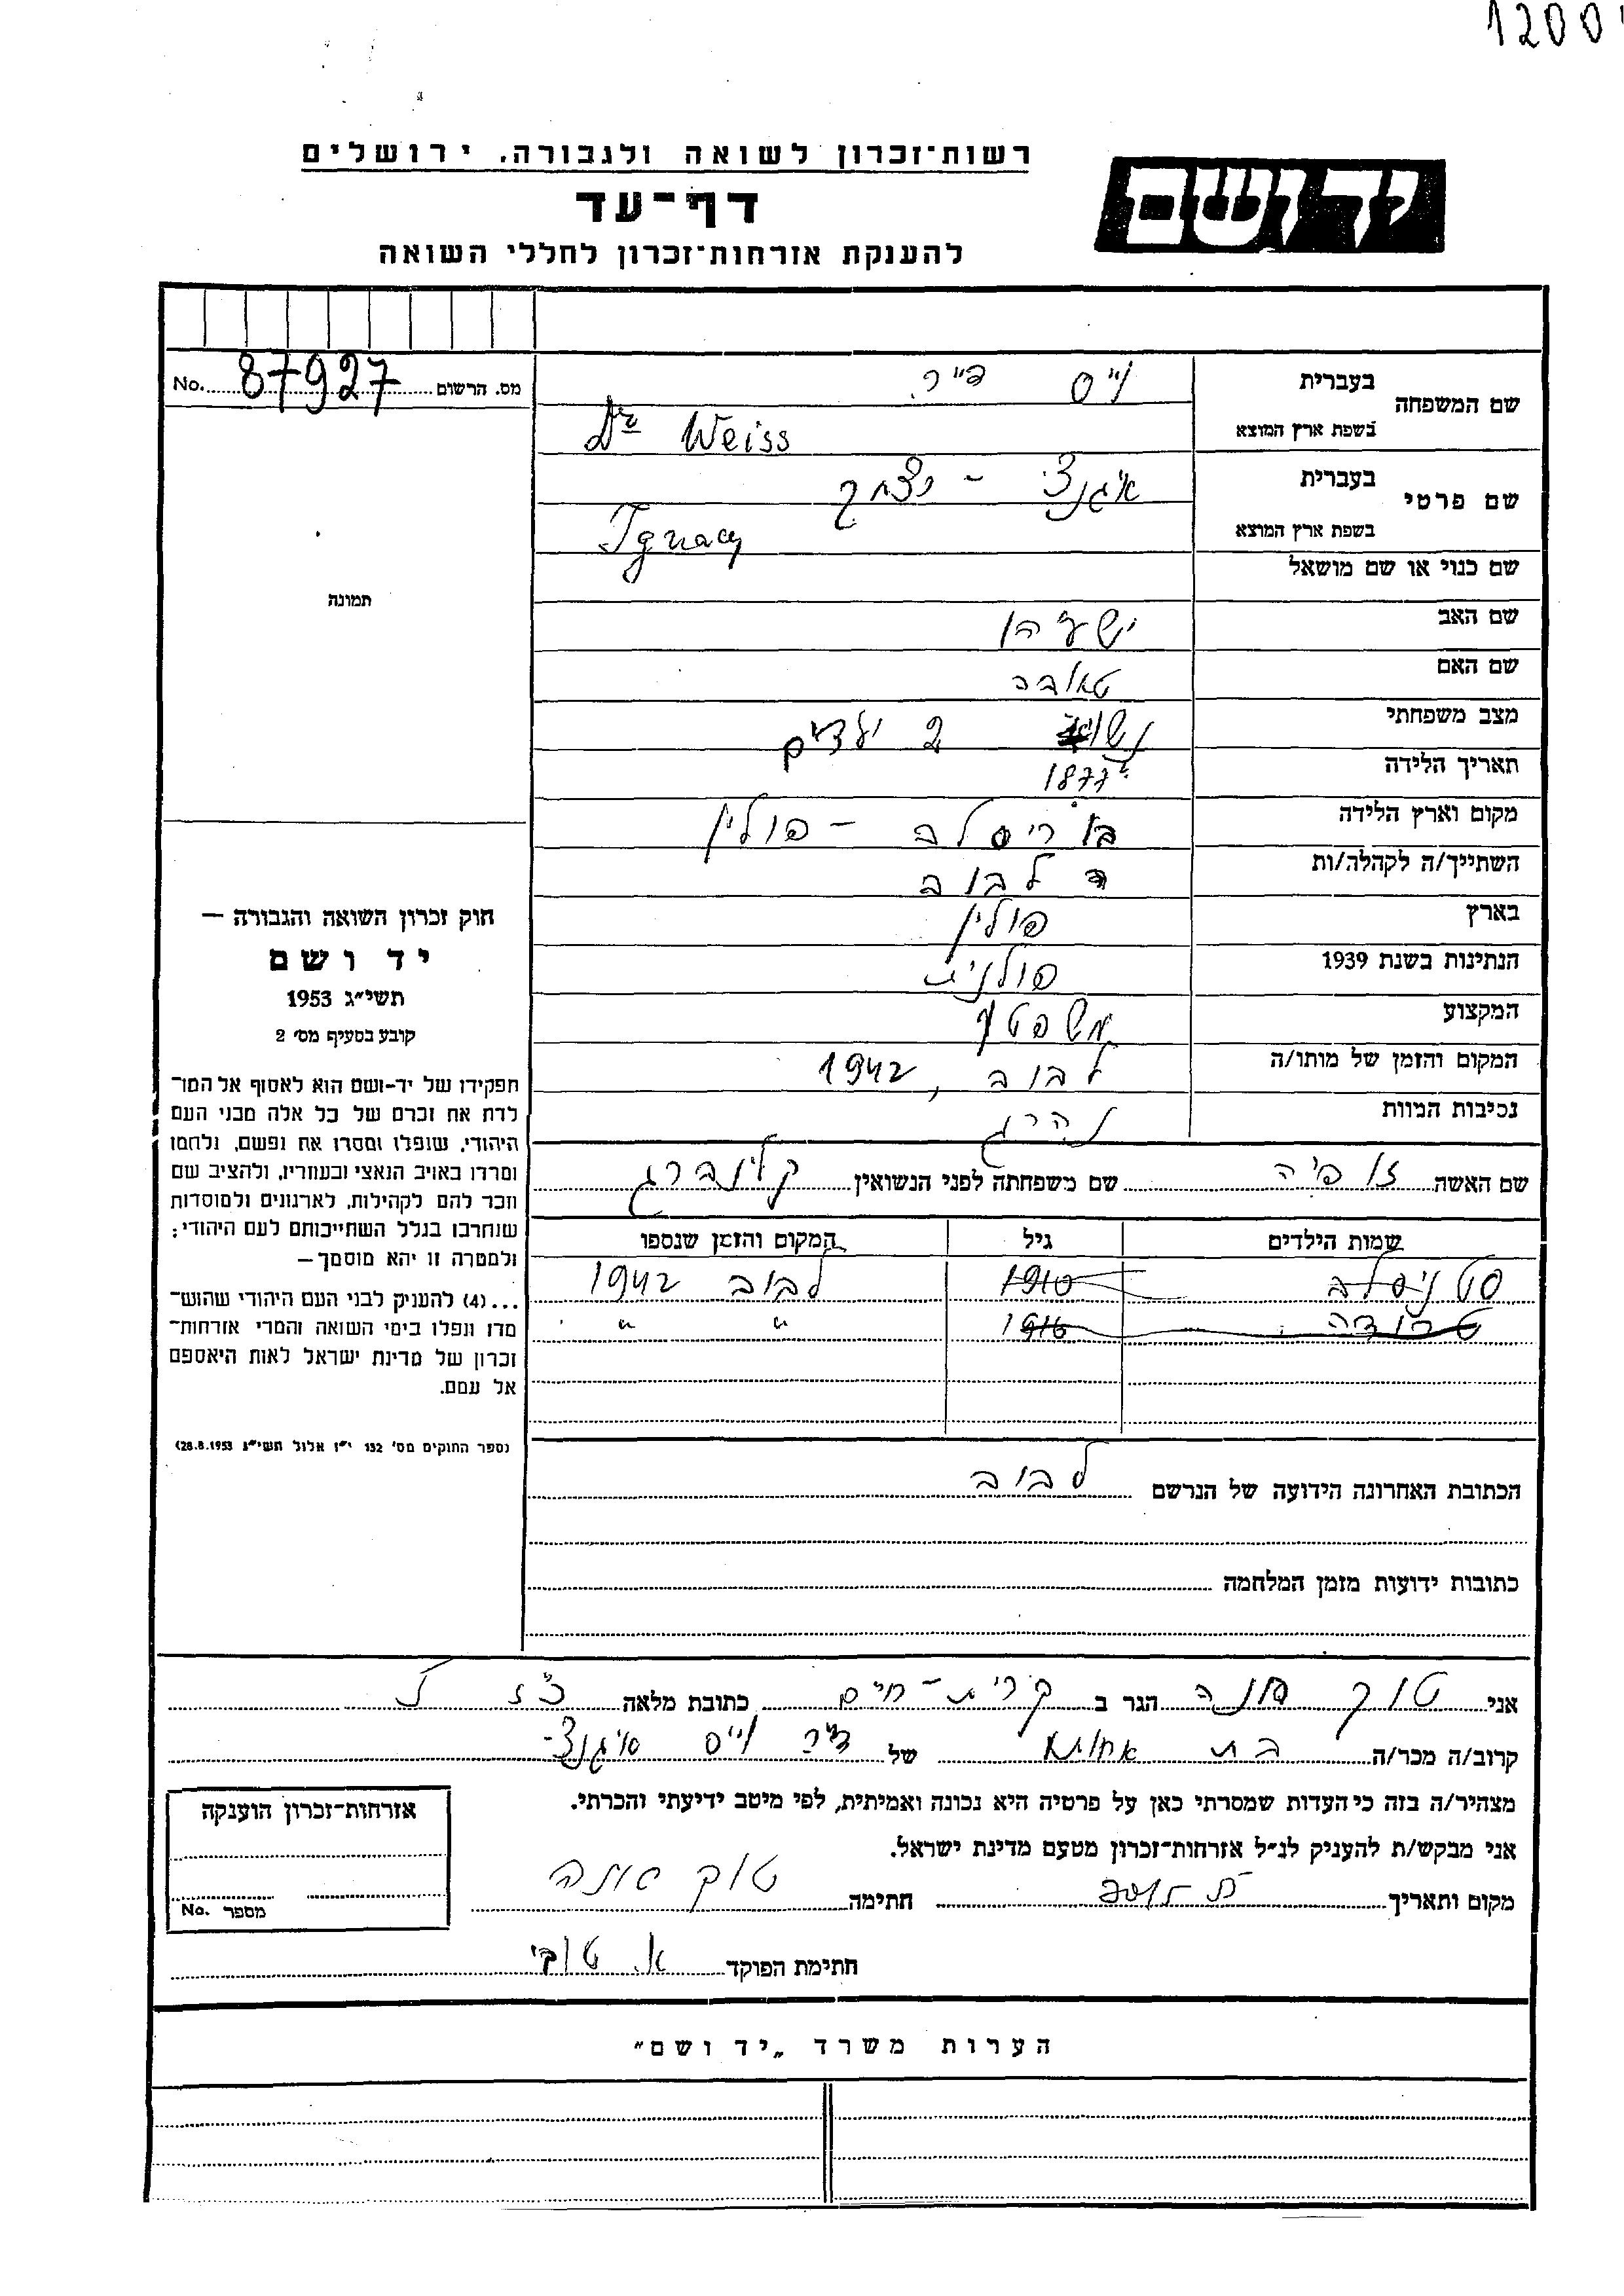 1200
רשות־זכרון לשואה ולגבורה, ירושלים
יד ושם
דף־עד
להענקת אזרחות־זכרון לחללי השואה
מס. הרשום 87927 No.
שם המשפחה
בעברית וייס ד״ר
בשפת ארץ המוצא Dr Weiss
שם פרטי
בעברית איגנצי - יצחק
בשפת ארץ המוצא Ignacy
שם כנוי או שם מושאל
שם האב ישעיהו
שם האם טאובה
מצב משפחתי נשוי 2 ילדים
תאריך הלידה 1877
מקום וארץ הלידה בוריסלב - פולין
השתייך/ה לקהלה/ות לבוב
בארץ פולין
הנתינות בשנת 1939 פולנית
המקצוע משפטן
המקום והזמן של מותו/ה לבוב, 1942
נסיבות המוות נהרג
שם האשה זופיה שם משפחתה לפני הנשואין קלינברג
שמות הילדים גיל המקום והזמן שנספו
סטניסלב 1910 לבוב 1942
1916 " "
הכתובת האחרונה הידועה של הנרשם לבוב
כתובות ידועות מזמן המלחמה
תמונה
חוק זכרון השואה והגבורה —
יד ושם
תשי״ג 1953
קובע בסעיף מס׳ 2
תפקידו של יד-ושם הוא לאסוף אל המו־
לדת את זכרם של כל אלה מבני העם
היהודי, שנפלו ומסרו את נפשם, נלחמו
ומרדו באויב הנאצי ובעוזריו, ולהציב שם
וזכר להם לקהילות, לארגונים ולמוסדות
שנחרבו בגלל השתייכותם לעם היהודי;
ולמטרה זו יהא מוסמך—
...(4) להעניק לבני העם היהודי שהוש־
מדו ונפלו בימי השואה והמרי אזרחות־
זכרון של מדינת ישראל לאות היאספם
אל עמם.
(ספר החוקים מס׳ 132 י״ז אלול תשי״ג 28.8.1953)
אני טוק חנה הגר ב קרית-חיים כתובת מלאה
קרוב/ה מכר/ה בת אחותו של ד״ר וייס איגנצי
מצהיר/ה בזה כי העדות שמסרתי כאן על פרטיה היא נכונה ואמיתית, לפי מיטב ידיעתי והכרתי.
אני מבקש/ת להעניק לנ״ל אזרחות־זכרון מטעם מדינת ישראל.
מקום ותאריך חתימה טוק חנה
חתימת הפוקד א. טובי
אזרחות־זכרון הוענקה
מספר No.
הערות משרד „יד ושם״